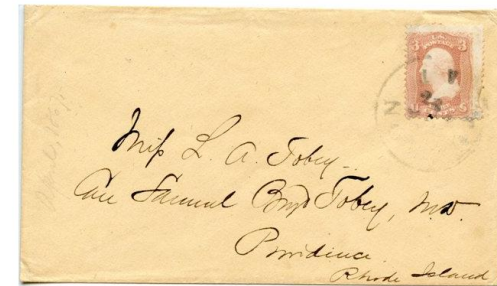 3 POSTAGE 3
Miss L. A. Tobey
Care Samuel Boyd Tobey, M.D.
Providence
Rhode Island